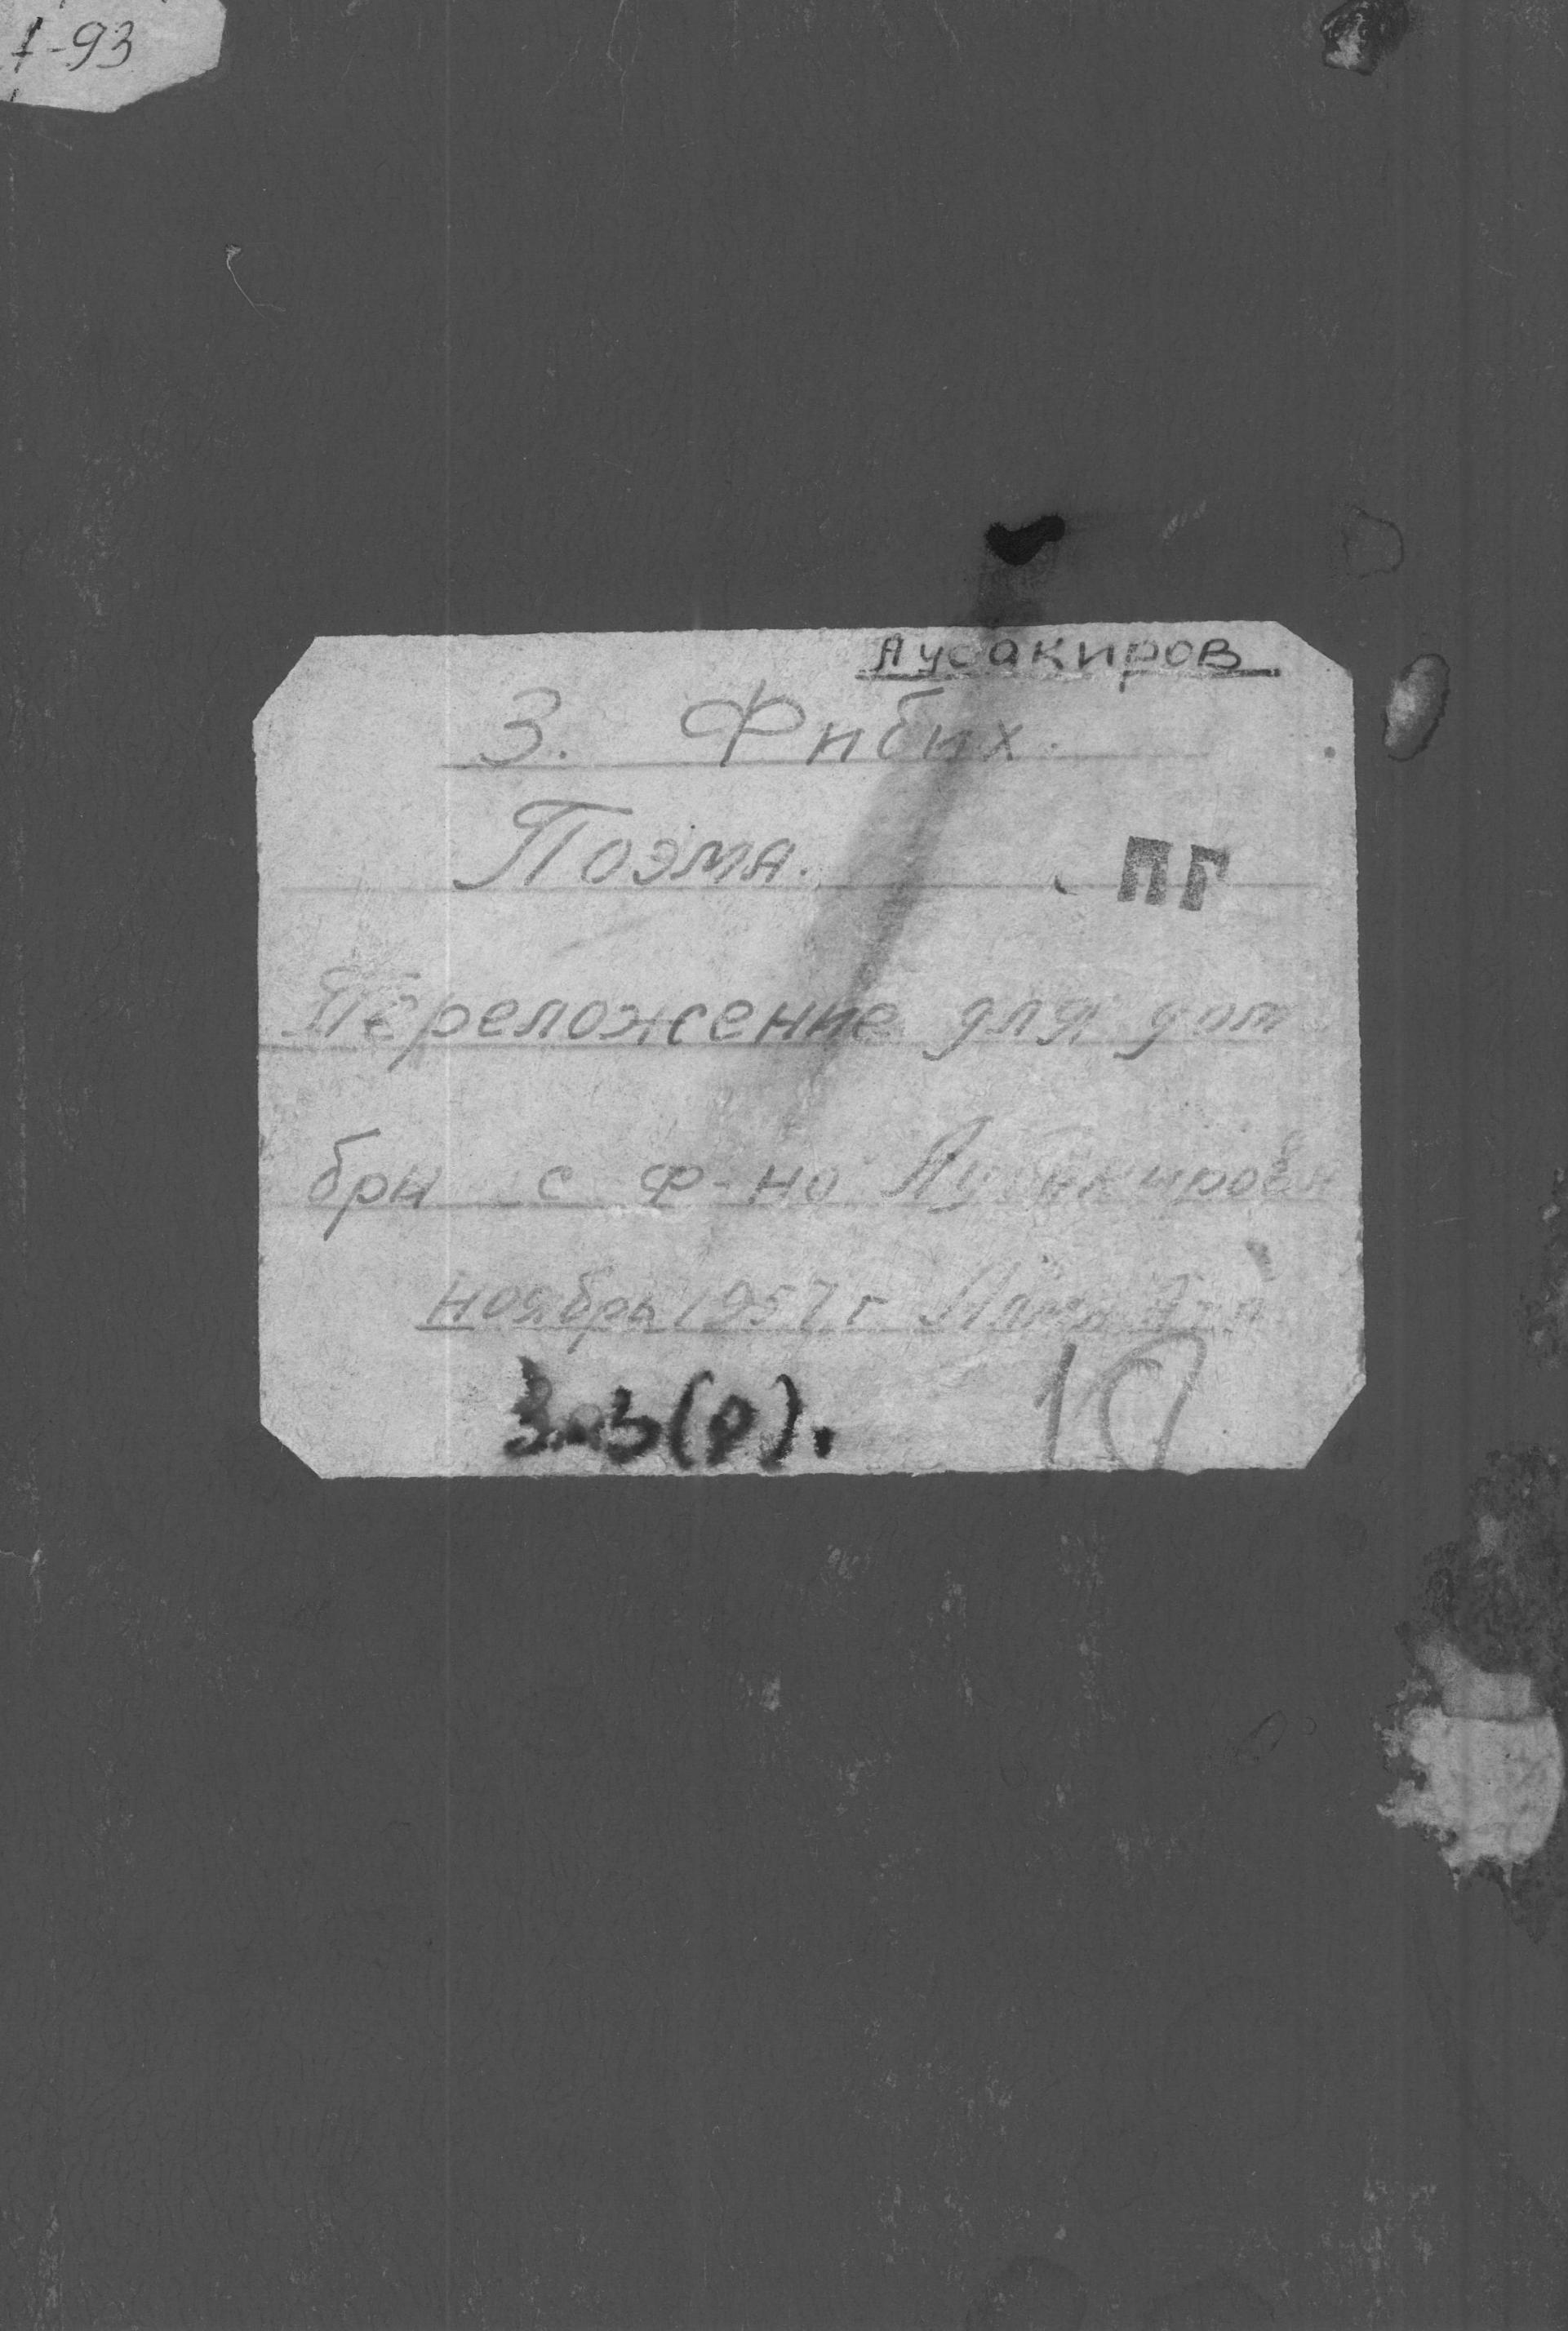 1-93
Аусакиров
З. Фибих.
Поэма.
ПГ
Переложение для дом
бры с ф-но Аубакирова
ноябрь 1957 г. Алма-Ата
10